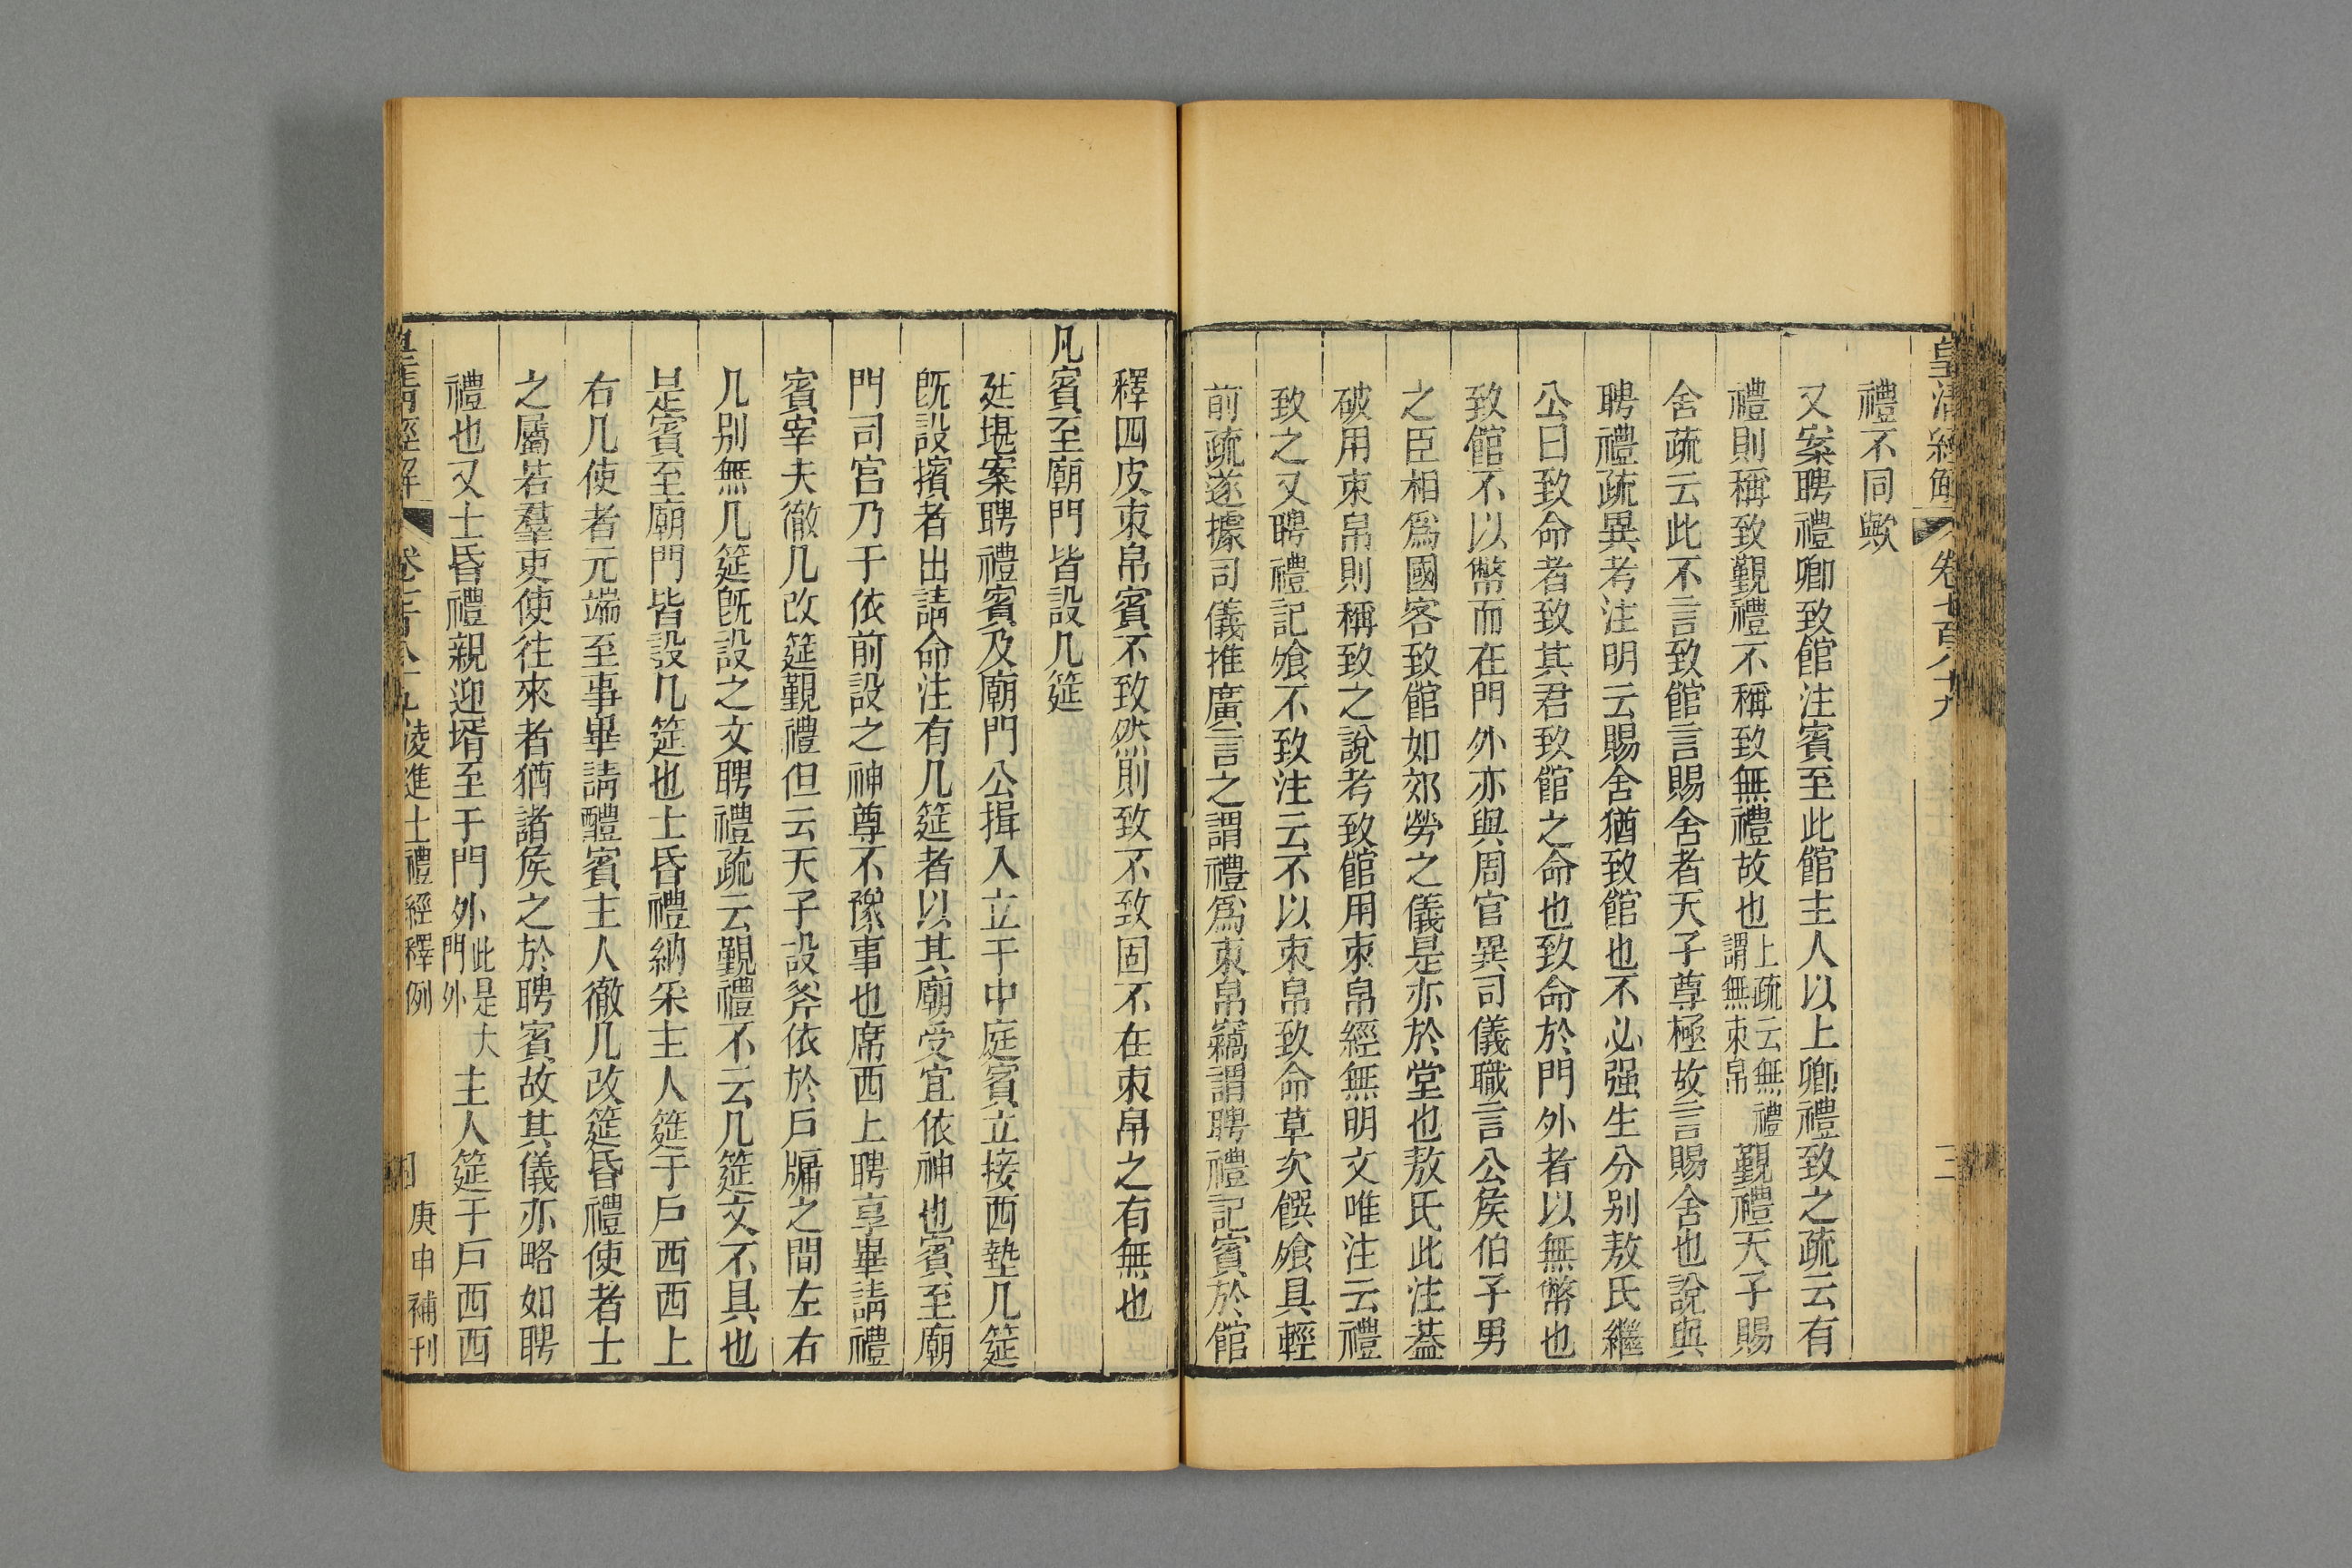 皇清經解 卷七百八十九 三
禮不同歟
又案聘禮卿致館注賓至此館主人以上卿禮致之疏云有
禮則稱致覲禮不稱致無禮故也上疏云無禮謂無束帛覲禮天子賜
舍疏云此不言致館言賜舍者天子尊極故言賜舍也說與
聘禮疏異考注明云賜舍猶致館也不必强生分别敖氏繼
公曰致命者致其君致館之命也致命於門外者以無幣也
致館不以幣而在門外亦與周官異司儀職言公侯伯子男
之臣相爲國客致館如郊勞之儀是亦於堂也敖氏此注葢
破用束帛則稱致之說考致館用束帛經無明文唯注云禮
致之又聘禮記飧不致注云不以束帛致命草次饌飧具輕
前疏遂據司儀推廣言之謂禮爲束帛竊謂聘禮記賓於館
釋四皮束帛賓不致然則致不致固不在束帛之有無也
凡賓至廟門皆設几筵
廷堪案聘禮賓及廟門公揖入立于中庭賓立接西塾几筵
旣設擯者出請命注有几筵者以其廟受宜依神也賓至廟
門司宮乃于依前設之神尊不豫事也席西上聘享畢請禮
賓宰夫徹几改筵覲禮但云天子設斧依於戶牖之間左右
几别無几筵旣設之文聘禮疏云覲禮不云几筵文不具也
是賓至廟門皆設几筵也士昏禮納采主人筵于戶西西上
右几使者元端至事畢請醴賓主人徹几改筵昏禮使者士
之屬若羣吏使往來者猶諸侯之於聘賓故其儀亦略如聘
禮也又士昏禮親迎壻至于門外此是大門外主人筵于戶西西
皇清經解 卷七百八十九 凌進士禮經釋例 四 庚申補刊